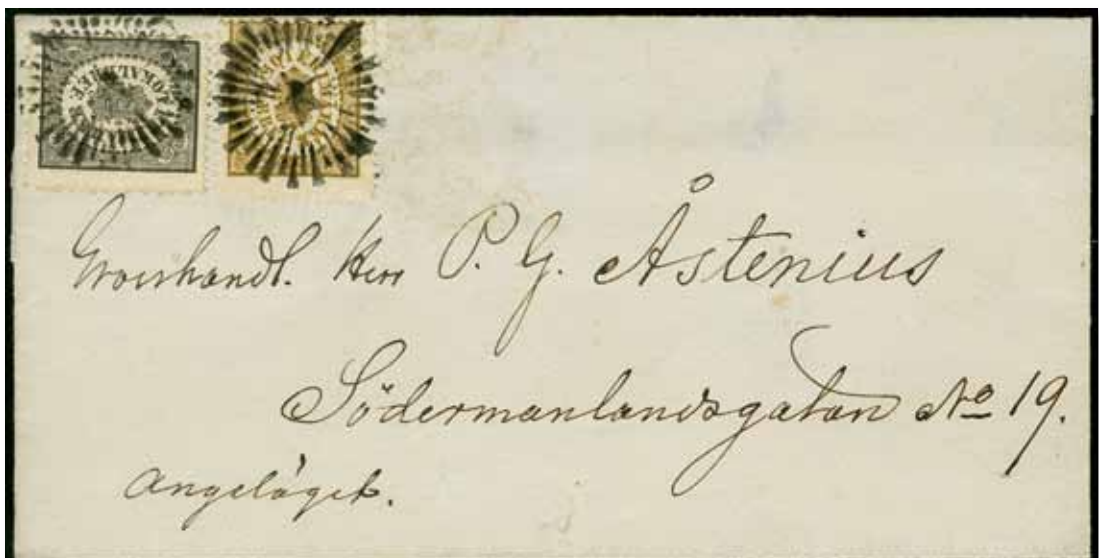 LOKALBREF
Grosshandl. Herr P. G. Åstenius
Södermanlandsgatan No 19.
Angeläget.